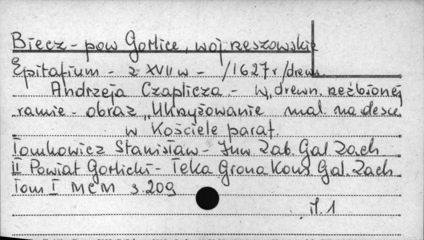 Biecz - pow Gorlice, woj rzeszowskie
Epitafium - z XVII w - /1627 r/ drewn.
Andrzeja Czaplicza - w drewn. rzeźbionej
ramie - obraz „Ukrzyżowanie mal na desce
w Kościele paraf.
Tomkowicz Stanisław - Inw Zab. Gal Zach
II Powiat Gorlicki - Teka Grona Kons. Gal. Zach
Tom I MCM s. 209
il. 1